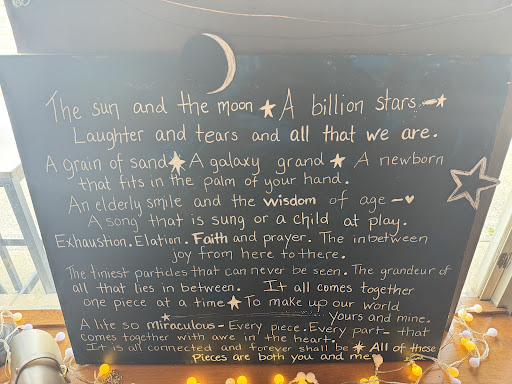 The sun and the moon ★ A billion stars ~★
Laughter and tears and all that we are.
A grain of sand ★ A galaxy grand ★ A newborn
that fits in the palm of your hand.
An elderly smile and the wisdom of age ~♥
A song that is sung or a child at play.
Exhaustion. Elation. Faith and prayer. The inbetween
joy from here to there.
The tiniest particles that can never be seen. The grandeur of
all that lies in between. It all comes together
one piece at a time ★ To make up our world
yours and mine.
A life so miraculous - Every piece. Every part - that
comes together with awe in the heart.
It is all connected and forever shall be ★ All of these
pieces are both you and me